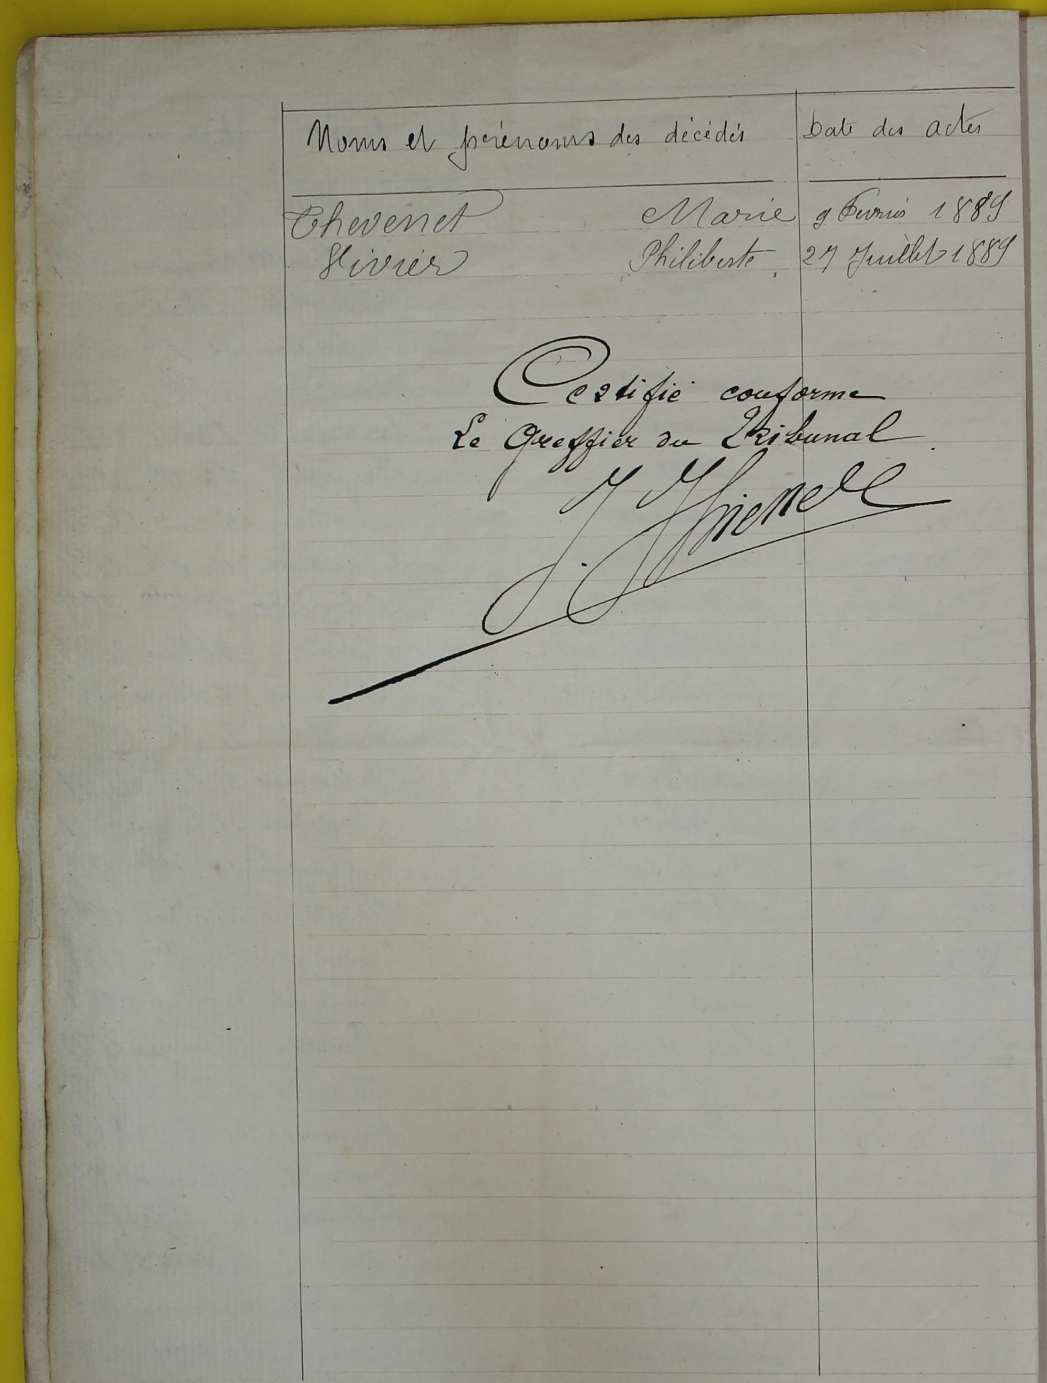 Noms et prénoms des décédés Date des actes
Thevenet Marie 9 Fevrier 1889
Vivier Philiberte 27 Juillet 1889
Certifié conforme
Le Greffier du Tribunal
J.